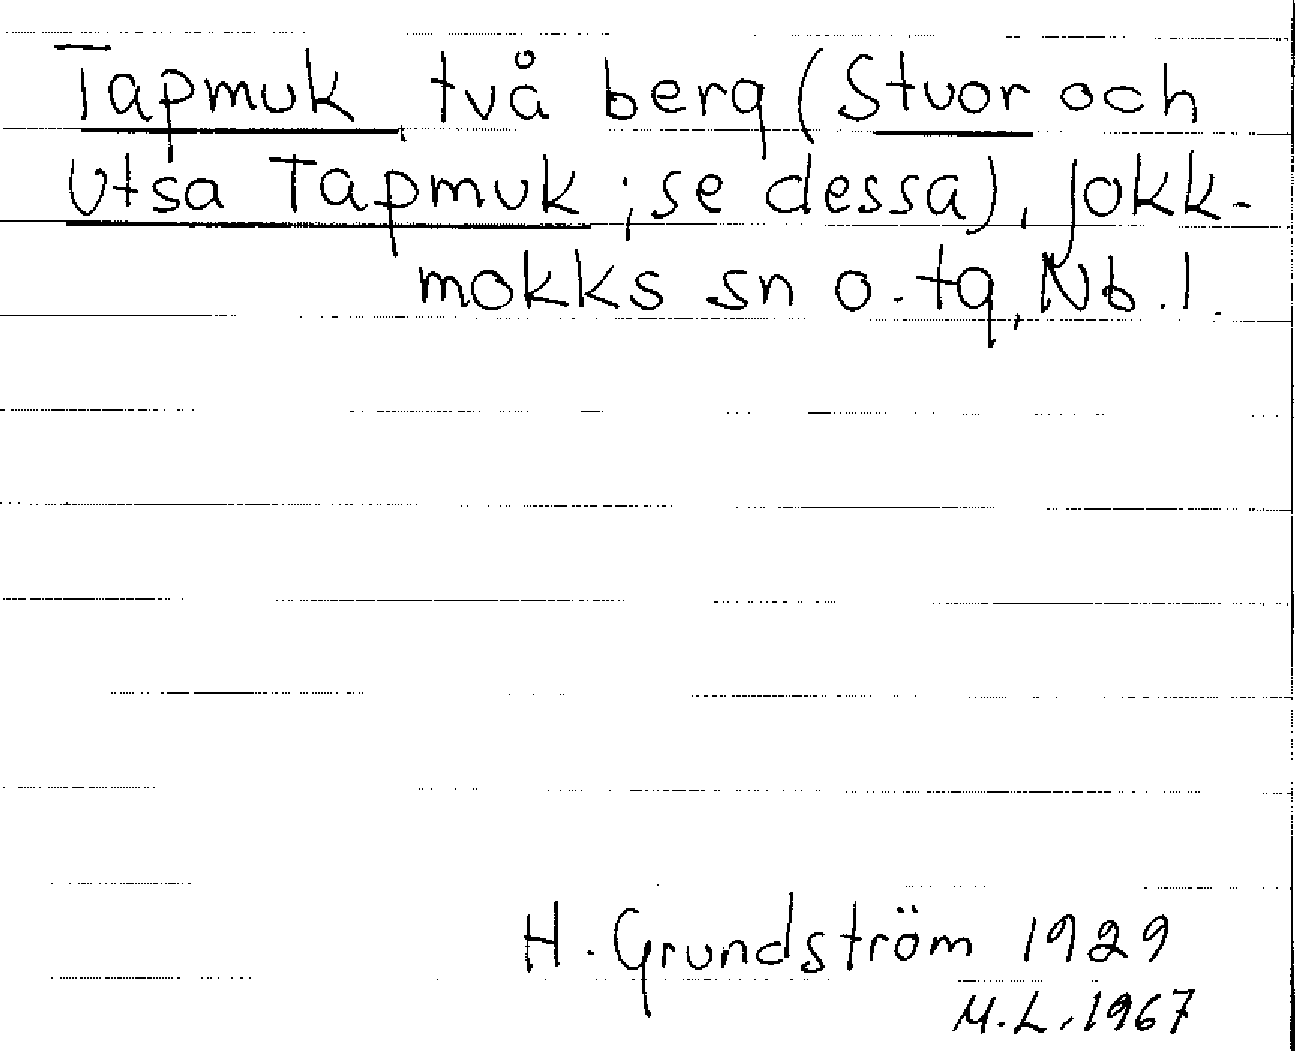 Tapmuk två berg (Stuor och
Utsa Tapmuk; se dessa), Jokk-
mokks sn o. tg, Nb. l.
H. Grundström 1929
M.L. 1967